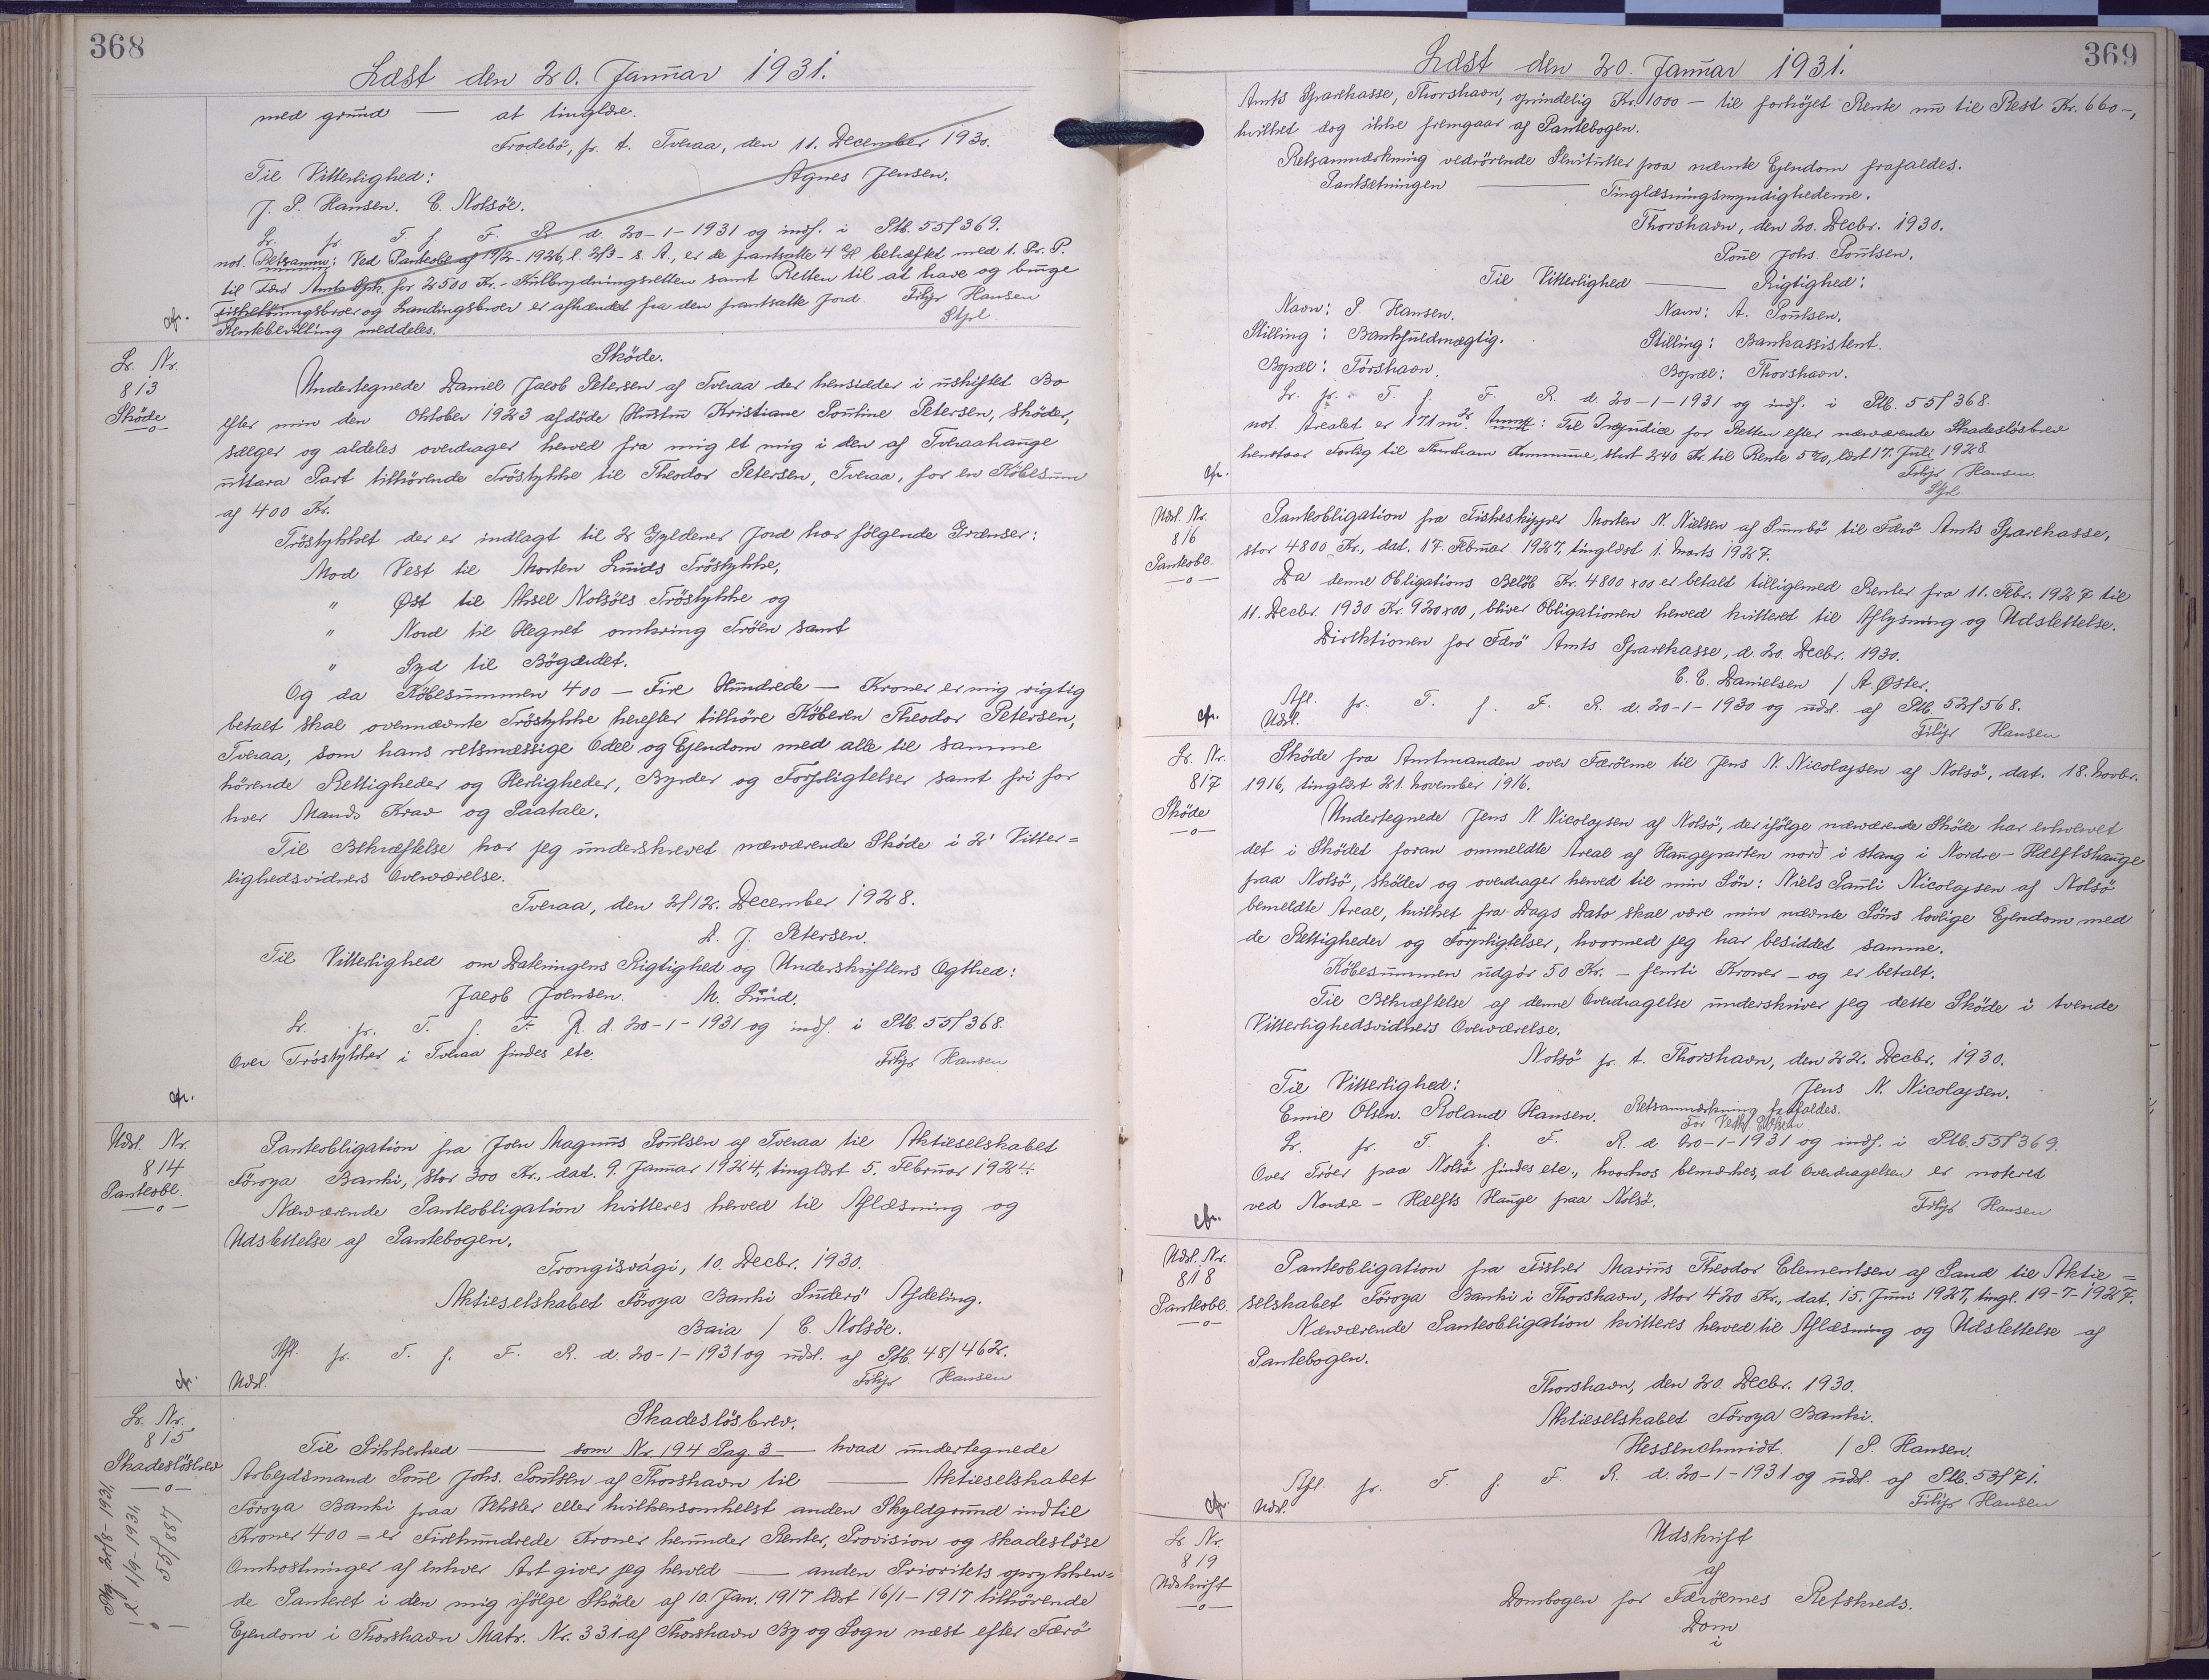 368
Læst den 20. Januar 1931.
med grund — at tinglæse.
Frodebö, p. t. Tveraa, den 11. December 1930.
Til Vitterlighed: Agnes Jensen.
J. P. Hansen. C. Nolsöe.
Lr. pr. T. f. F. R. d. 20-1-1931 og indf. i Ptb. 55/369.
not. Retsanm: Ved Panteobl. af 19/2-1926, l. 2/3 - s. A., er de pantsatte 4 behæftet med 1. Pr. P.
til Færö Amts Spk. for 2500 Kr. - Kulbrydningsretten samt Retten til at have og bruge
og Landingsbroer er afhændet fra den pantsatte Jord. Filip Hansen
Rentebevilling meddeles. Stpl.
cfr.
Lr. Nr.
813
Sköde
Sköde.
Undertegnede Daniel Jacob Petersen af Tveraa der hensidder i uskiftet Bo
efter min den Oktober 1923 afdöde Hustru Kristiane Pouline Petersen, sköder,
sælger og aldeles overdrager herved fra mig et mig i den af Tveraahauge
uttara Part tilhörende Tröstykke til Theodor Petersen, Tveraa, for en Köbesum
af 400 Kr.
Tröstykket der er indlagt til 2 Gyldener Jord har følgende Grænser:
Mod Vest til Morten Lunds Tröstykke,
" Øst til Aksel Nolsöes Tröstykke og
" Nord til Hegnet omkring Tröen samt
" Syd til Bögærdet.
Og da Köbesummen 400 — Fire Hundrede — Kroner er mig rigtig
betalt skal ovennævnte Tröstykke herefter tilhöre Köberen Theodor Petersen,
Tveraa, som hans retsmæssige Odel og Ejendom med alle til samme
hörende Rettigheder og Herligheder, Byrder og Forpligtelser samt fri for
hver Mands Krav og Paatale.
Til Bekræftelse har jeg underskrevet nærværende Sköde i 2' Vitter=
lighedsvidners Overværelse.
Tveraa, den 2/12. December 1928.
D. J. Petersen.
Til Vitterlighed om Dateringens Rigtighed og Underskriftens Ægthed:
Jacob Joensen. M. Lund.
Lr. pr. T. f. F. R. d. 20-1-1931 og indf. i Ptb. 55/368.
Over Tröstykker i Tveraa findes ete. Filip Hansen
cfr.
Udsl. Nr.
814
Panteobl.
Panteobligation fra Joen Magnus Poulsen af Tveraa til Aktieselskabet
Föroya Banki, stor 300 Kr., dat. 9. Januar 1924, tinglæst 5. Februar 1924.
Nærværende Panteobligation kvitteres herved til Aflæsning og
Udslettelse af Pantebogen.
Trongisvági, 10. Decbr. 1930.
Aktieselskabet Föroya Banki Suderö Afdeling.
Baia / C. Nolsöe.
Afl. pr. T. f. F. R. d. 20-1-1931 og udsl. af Ptb. 48/462.
Udsl. Filip Hansen
cfr.
Lr. Nr.
815
Skadeslösbrev
l. 1/9-1931
55/887
Skadeslösbrev.
Til Sikkerhed — som Nr. 194 Pag. 3 — hvad undertegnede
Arbejdsmand Poul Johs. Poulsen af Thorshavn til — Aktieselskabet
Föroya Banki paa Veksler eller hvilkensomhelst anden Skyldgrund indtil
Kroner 400 = er Firehundrede Kroner herunder Renter, Provision og skadeslöse
Omkostninger af enhver Art giver jeg herved — anden Prioritets oprykken=
de Panteret i den mig ifölge Sköde af 10. Jan. 1917 læst 16/1-1917 tilhörende
Ejendom i Thorshavn Matr. Nr. 331 af Thorshavn By og Sogn næst efter Færö
369
Læst den 20. Januar 1931.
Amts Sparekasse, Thorshavn, oprindelig Kr. 1000 — til forhöjet Rente nu til Rest Kr. 660 -,
hvilket dog ikke fremgaar af Pantebogen.
Retsanmærkning vedrörende Servitutter paa nævnte Ejendom frafaldes.
Pantsætningen — Tinglæsningsmyndighederne.
Thorshavn, den 20. Decbr. 1930.
Poul Johs. Poulsen.
Til Vitterlighed — Rigtighed:
Navn: P. Hansen. Navn: A. Poulsen.
Stilling: Bankfuldmægtig. Stilling: Bankassistent.
Bopæl: Tórshavn. Bopæl: Thorshavn.
Lr. pr. T. f. F. R. d. 20-1-1931 og indf. i Ptb. 55/368.
not. Arealet er 171 m2. Anm: Til Præjudice for Retten efter nærværende Skadeslösbrev
henstaar Forlæg til Thorshavn Kommune, stort 240 Kr. til Rente 5%, læst 17. Juli 1928.
Filip Hansen
Stpl.
cfr.
Udsl. Nr.
816
Panteobl.
Panteobligation fra Fiskeskipper Morten N. Nielsen af Sumbö til Færö Amts Sparekasse,
stor 4800 Kr., dat. 17. Februar 1927, tinglæst 1. Marts 1927.
Da denne Obligations Belöb Kr. 4800 x 00 er betalt tilligemed Renter fra 11. Febr. 1927 til
11. Decbr. 1930 Kr. 920 x 00, bliver Obligationen herved kvitteret til Aflysning og Udslettelse.
Direktionen for Færö Amts Sparekasse, d. 20. Decbr. 1930.
C. C. Danielsen / A. Øster.
Afl. pr. T. f. F. R. d. 20-1-1930 og udsl. af Ptb. 52/568.
Udsl. Filip Hansen
cfr.
Lr. Nr.
817
Sköde
Sköde fra Amtmanden over Færöerne til Jens N. Nicolajsen af Nolsö, dat. 18. Novbr.
1916, tinglæst 21. November 1916.
Undertegnede Jens N. Nicolajsen af Nolsö, der ifölge nærværende Sköde har erhvervet
det i Sködet foran ommeldte Areal af Haugeparten norð i stang i Nordre - Hælftshauge
paa Nolsö, sköder og overdrager herved til min Sön: Niels Pauli Nicolajsen af Nolsö
bemeldte Areal, hvilket fra Dags Dato skal være min nævnte Söns lovlige Ejendom med
de Rettigheder og Forpligtelser, hvormed jeg har besiddet samme.
Köbesummen udgör 50 Kr. — femti Kroner — og er betalt.
Til Bekræftelse af denne Overdragelse underskriver jeg dette Sköde i tvende
Vitterlighedsvidners Overværelse.
Nolsö p. t. Thorshavn, den 22. Decbr. 1930.
Til Vitterlighed: Jens N. Nicolajsen.
Emil Olsen. Roland Hansen. Retsanmærkning frafaldes.
Lr. pr. T. f. F. R. d. 20-1-1931 og indf. i Ptb. 55/369.
Over Tröer paa Nolsö findes ete., hvorhos bemærkes, at Overdragelsen er noteret
ved Nordre - Hælfts Hauge paa Nolsö. Filip Hansen
cfr.
Udsl. Nr.
818
Panteobl.
Panteobligation fra Fisker Marius Theodor Clementsen af Sand til Aktie=
selskabet Föroya Banki i Thorshavn, stor 420 Kr., dat. 15. Juni 1927, tingl. 19-7-1927.
Nærværende Panteobligation kvitteres herved til Aflæsning og Udslettelse af
Pantebogen.
Thorshavn, den 20. Decbr. 1930.
Aktieselskabet Föroya Banki.
Hessenschmidt. / P. Hansen.
Afl. pr. T. f. F. R. d. 20-1-1931 og udsl. af Ptb. 53/71.
Udsl. Filip Hansen
cfr.
Lr. Nr.
819
Udskrift
Udskrift
af
Dombogen for Færöernes Retskreds.
Dom
i